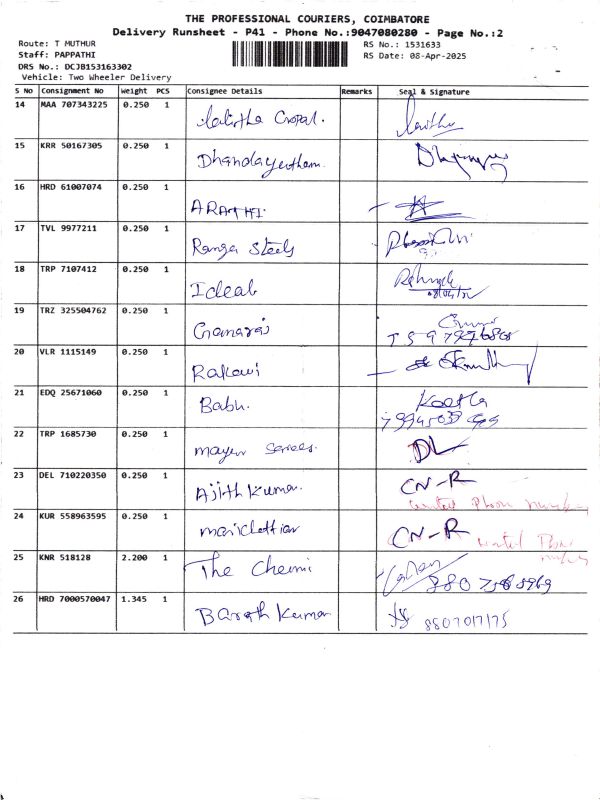 THE PROFESSIONAL COURIERS, COIMBATORE
Delivery Runsheet - P41 - Phone No.:9047080280 - Page No.:2
Route: T MUTHUR
Staff: PAPPATHI
DRS No.: DCJB153163302
Vehicle: Two Wheeler Delivery
RS No.: 1531633
RS Date: 08-Apr-2025
S No Consignment No Weight PCS Consignee Details Remarks Seal & Signature
14 MAA 707343225 0.250 1 Lalitha Gopal.
15 KRR 50167305 0.250 1 Dhandayutham
16 HRD 61007074 0.250 1 ARATHI
17 TVL 9977211 0.250 1 Ranga Steels
18 TRP 7107412 0.250 1 Ideal
19 TRZ 325504762 0.250 1
20 VLR 1115149 0.250 1
21 EDQ 25671060 0.250 1 Babu. Keetha
22 TRP 1685730 0.250 1 DL
23 DEL 710220350 0.250 1 Ajith Kumar. CN-R
Phone number
24 KUR 558963595 0.250 1 CN-R
25 KNR 518128 2.200 1 The Chenni
26 HRD 7000570047 1.345 1 Barath Kumar 8807017175